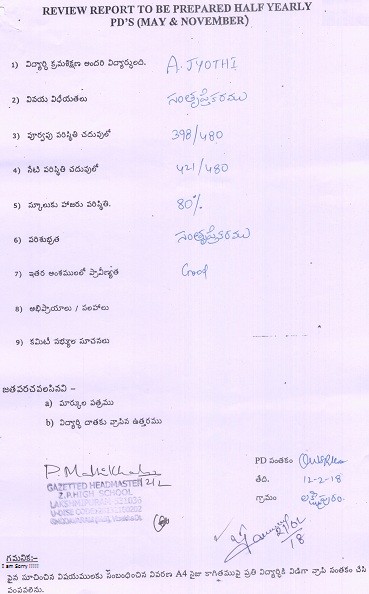 REVIEW REPORT TO BE PREPARED HALF YEARLY
PD'S (MAY & NOVEMBER)
1) విద్యార్థి క్రమశిక్షణ అందరి విద్యార్థులది. A. JYOTHI
2) వినయ విధేయతలు సంతృప్తికరము
3) పూర్వపు పరిస్థితి చదువులో 398/480
4) నేటి పరిస్థితి చదువులో 421/480
5) స్కూలుకు హాజరు పరిస్థితి. 80%
6) పరిశుభ్రత సంతృప్తికరము
7) ఇతర అంశములలో ప్రావీణ్యత Good
8) అభిప్రాయాలు / సలహాలు
9) కమిటీ సభ్యుల సూచనలు
జతపరచవలసినవి –
a) మార్కుల పత్రము
b) విద్యార్థి దాతకు వ్రాసిన ఉత్తరము
PD సంతకం
GAZETTED HEADMASTER
తేది. 12-2-18
Z.P.HIGH SCHOOL
గ్రామం
గమనిక:–
I am Sorry !!!!!
పైన సూచించిన విషయములకు సంబంధించిన వివరణ A4 సైజు కాగితముపై ప్రతి విద్యార్థికి విడిగా వ్రాసి సంతకం చేసి
పంపవలెను.